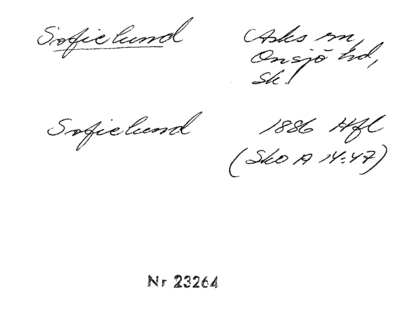 Sofielund Asks sn,
Onsjö hd,
Sk.
Sofielund 1886 Hfl
(Sko A 14:47)
Nr 23264